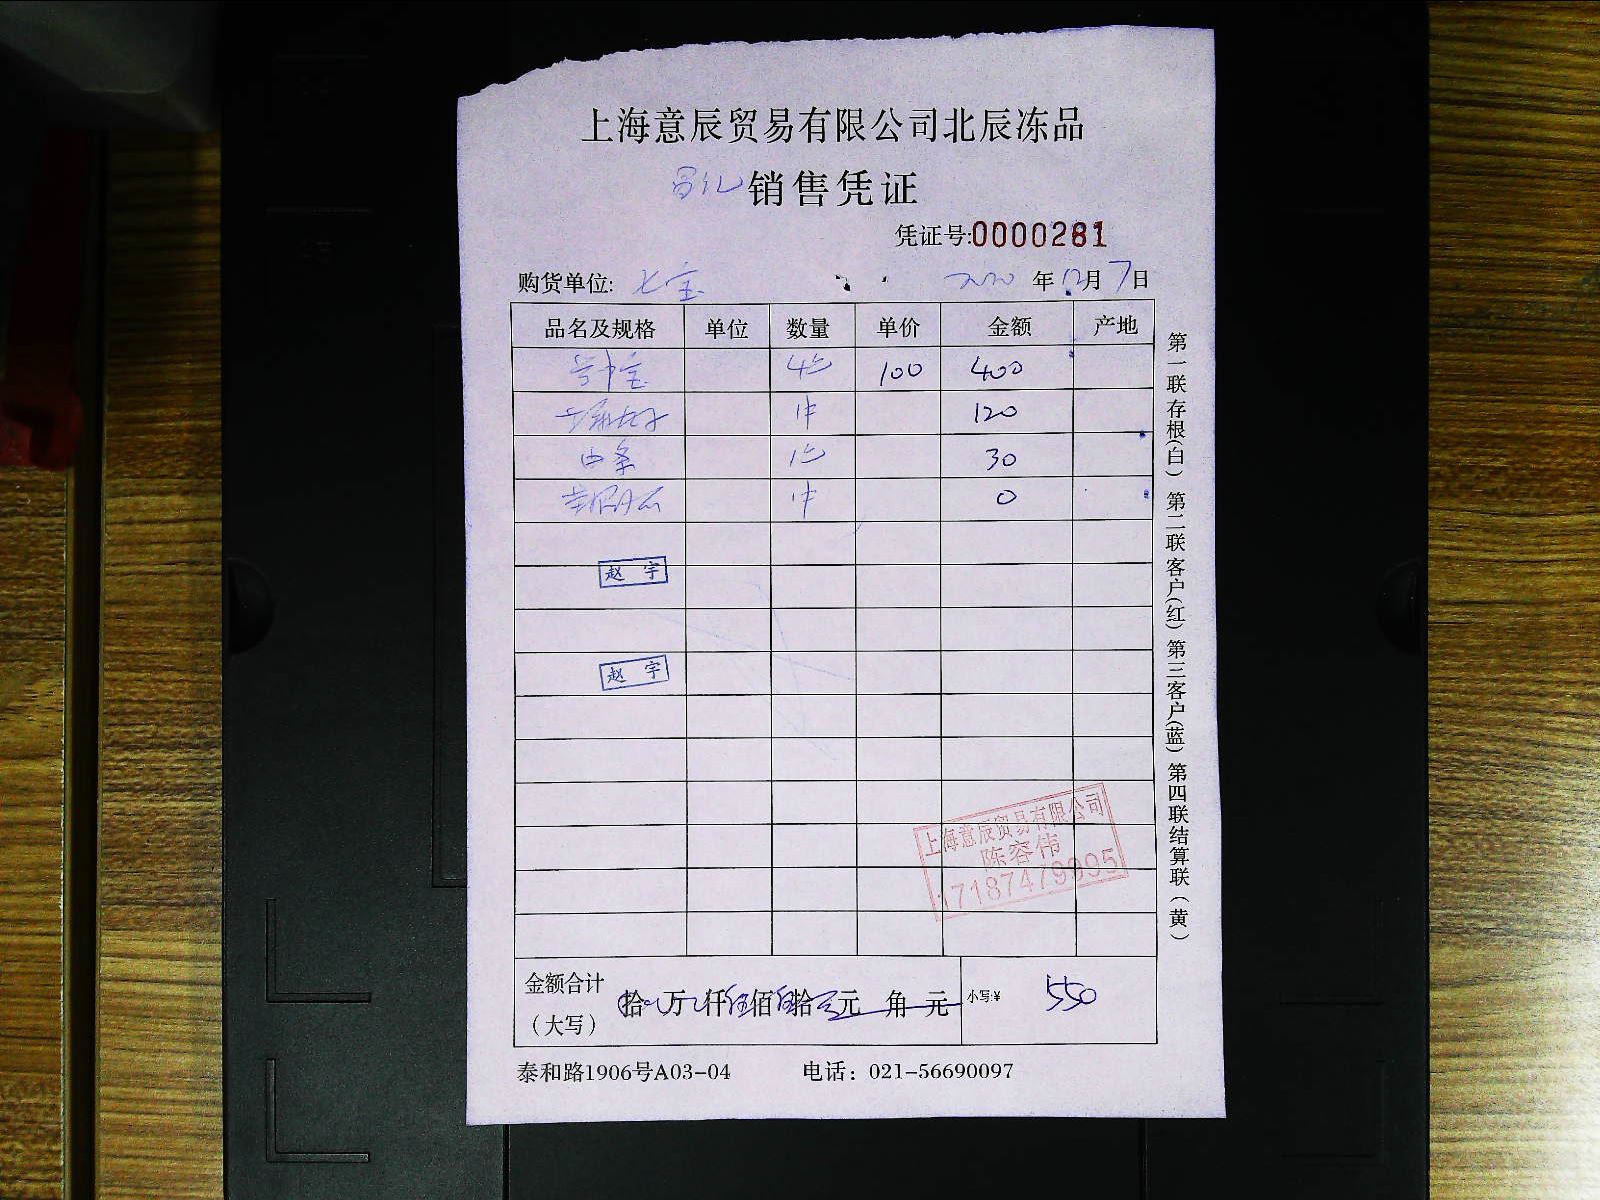 上海意辰贸易有限公司北辰冻品
销售凭证
凭证号:0000281
购货单位: 七宝 2020 年 12 月 7 日
品名及规格 单位 数量 单价 金额 产地
100 400
120
30
0
赵 宇
赵 宇
上海意辰贸易有限公司
陈容伟
17187479995
金额合计
(大写)
拾 万 仟 伍 佰 伍 拾 元 角 元 小写:¥ 550
泰和路1906号A03-04 电话：021-56690097
第一联存根(白) 第二联客户(红) 第三客户(蓝) 第四联结算联(黄)